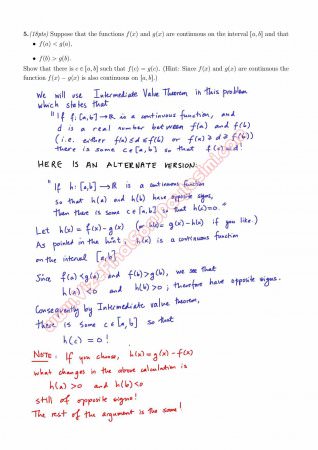 5. (18pts) Suppose that the functions f(x) and g(x) are continous on the interval [a, b] and that
• f(a) < g(a),
• f(b) > g(b).
Show that there is c ∈ [a, b] such that f(c) = g(c). (Hint: Since f(x) and g(x) are continuous the
function f(x) − g(x) is also continuous on [a, b].)
We will use Intermediate Value Theorem in this problem
which states that
"If f: [a,b] → ℝ is a continuous function, and
d is a real number between f(a) and f(b)
(i.e. either f(a) ≤ d ≤ f(b) or f(a) ≥ d ≥ f(b))
there is some c ∈ [a,b] so that f(c) = d!
HERE IS AN ALTERNATE VERSION:
"If h: [a,b] → ℝ is a continuous function
so that h(a) and h(b) have opposite signs,
then there is some c ∈ [a,b] so that h(c)=0."
Let h(x) = f(x) - g(x) (or h(x) = g(x) - h(x) if you like.)
As pointed in the hint, h(x) is a continuous function
on the interval [a,b].
Since f(a) < g(a) and f(b) > g(b), we see that
h(a) < 0 and h(b) > 0; therefore have opposite signs.
Consequently by Intermediate value theorem,
there is some c ∈ [a,b] so that
h(c) = 0!
NOTE: If you choose, h(x) = g(x) - f(x)
what changes in the above calculation is
h(a) > 0 and h(b) < 0
still of opposite signs!
The rest of the argument is the same!